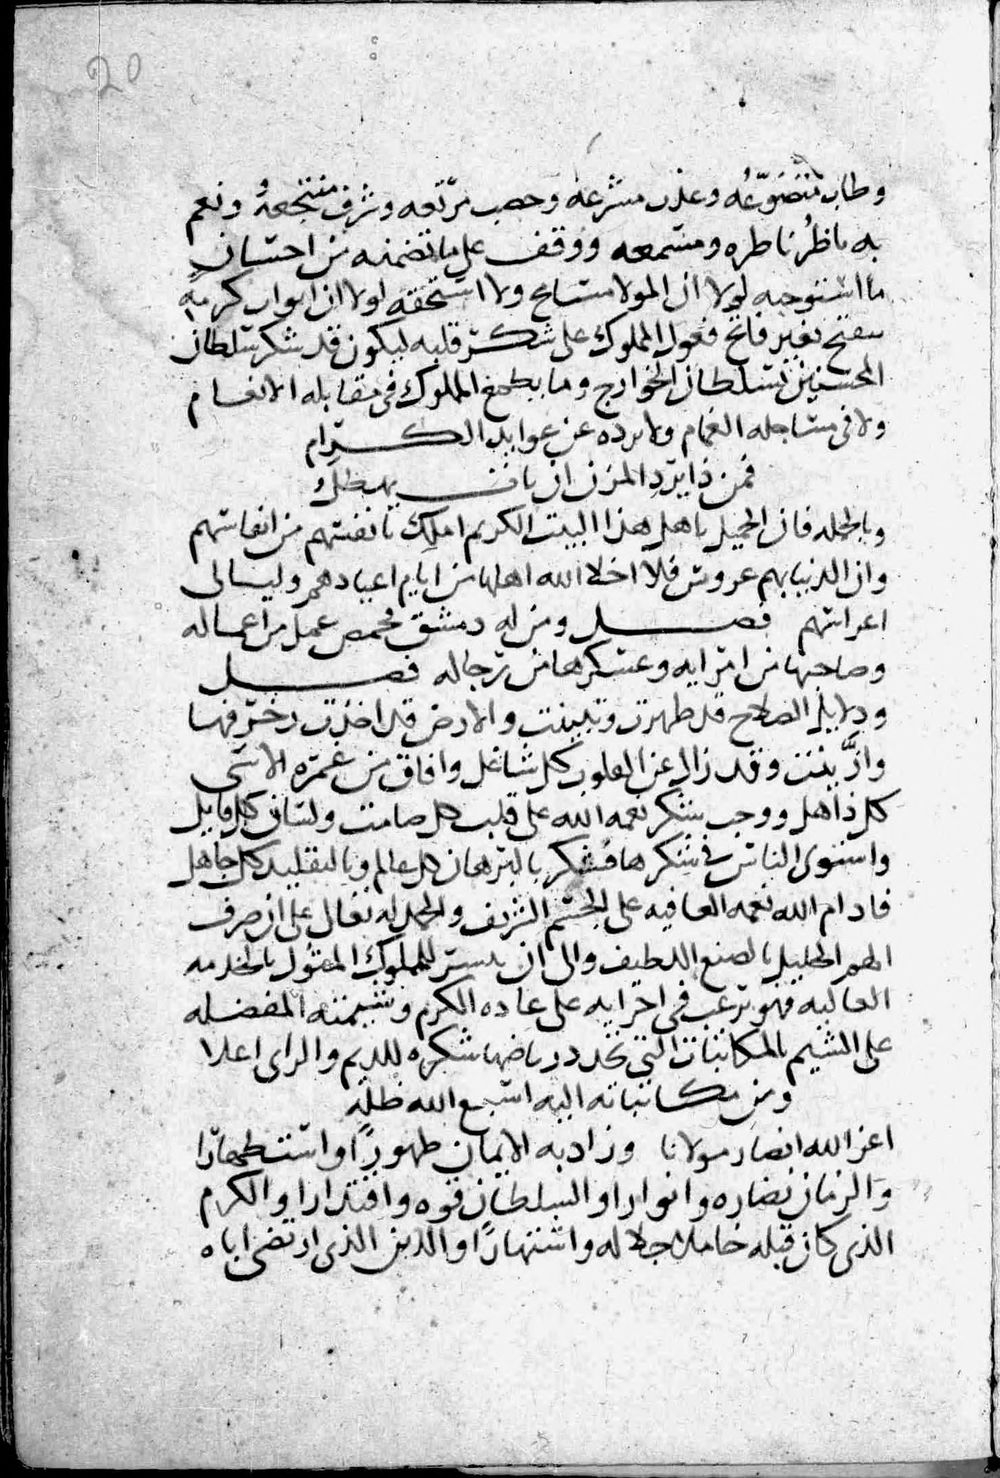 20
وطاب متضوّعُه وعذب مشرعه وخصب مرّتعه وشرف منتجعهُ ونعم
به ناظرُ ناظره ومسمعه ووقف على ما تضمنه من احسان
ما استوجبه لولا ان المولا مسامح ولا استحقه لولا ان ابواب كرمه
تنفتح بغير فاتح فعول المملوك على شكر قلبه ليكون قد شكر سلطان
المحسنين بسلطان الجوارح وما يطمع المملوك في مقابله الانعام
ولا في مساجله الغمام ولا يرده عن عوايد الكرام
فمن ذا يرد المزن ان
وبالجمله فان الجميل باهل هذا البيت الكريم املك بانفسهم من انفاسهم
وان الدنيا بهم عروس فلا اخلا الله اهلها من ايام اعيادهم وليالى
اعراسهم فصل ومن له دمشق فحمص عمل من اعماله
وصاحبها من امرايه وعسكرها من رجاله فصل
ودلايل الصلاح قد ظهرت وتبينت والارض قد اخذت زخرفها
وازَّينت وقد زال عن القلوب كل شاغل وافاق من غمره الاسى
كل ذاهل ووجب شكر نعمه الله على قلب كل صامت ولسان كل قايل
واستوى الناس في شكرها فشكر بالبرهان كل عالم وبالتقليد كل جاهل
فادام الله نعمه العافيه على الجسم الشريف والحمد لله تعالى على ان صرف
الهم الجليل بالصنع اللطيف والى ان ييسر للمملوك المثول بالخدمه
العاليه فهو يرغب في اجرايه على عاده الكرم وشيمته المفضله
على الشيم بالمكاتبات التي تجدد رياضها شكره للديم والراى اعلا
ومن مكاتباته اليه اسبغ الله ظله
اعز الله انصار مولانا وزاد به الايمان ظهورًا واستظهارًا
والزمان نضاره وانوارا والسلطان قوه واقتدارا والكرم
الذى كان قبله خاملا جلاله واشتهارًا والدين الذى ارتضى اياه